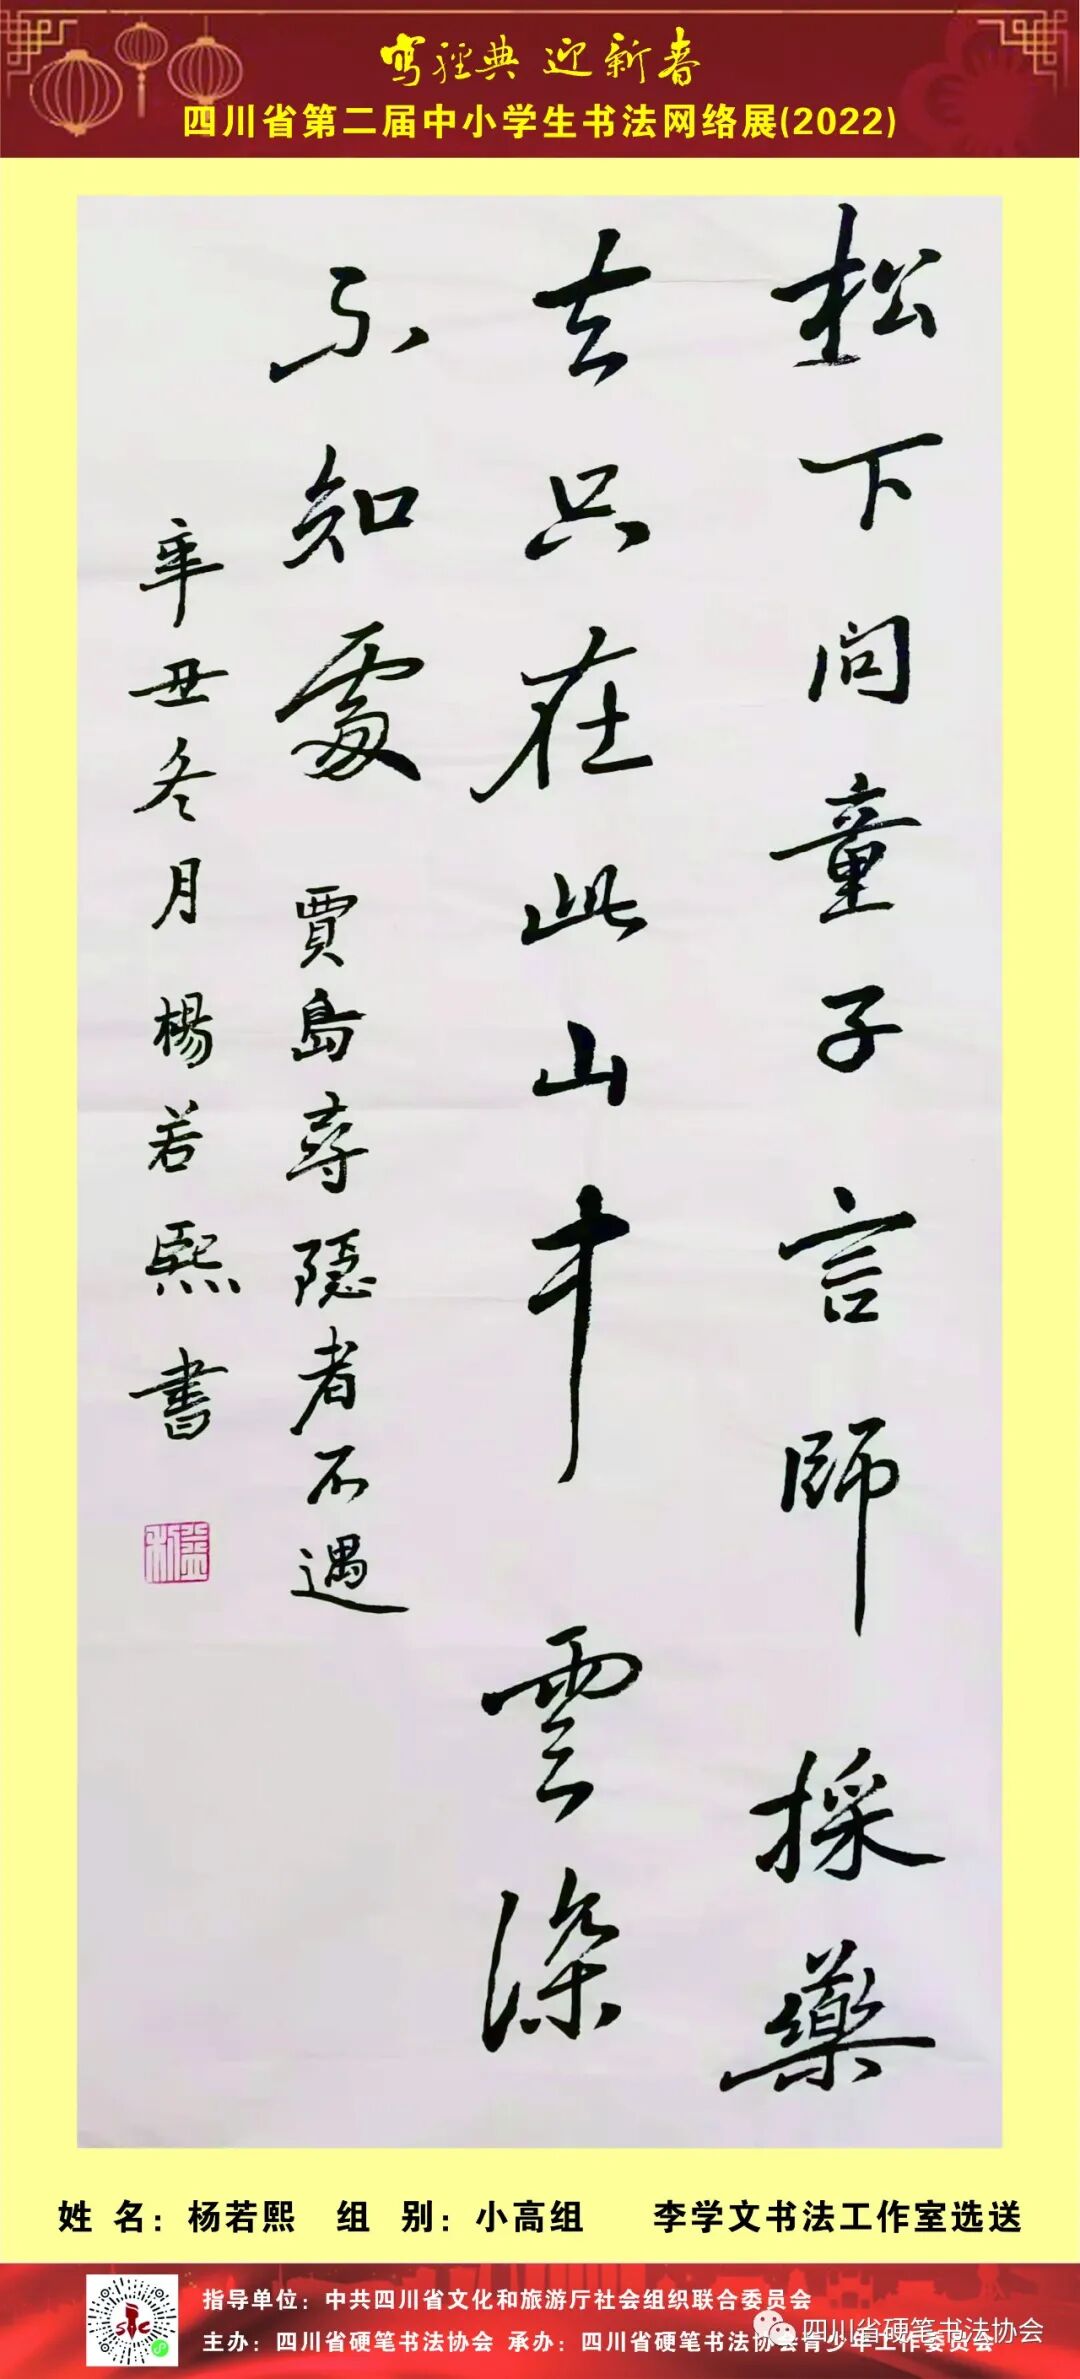 写经典 迎新春
四川省第二届中小学生书法网络展(2022)
松下问童子言師採藥
去只在此山中雲深
不知處 賈島尋隱者不遇
辛丑冬月楊若熙書
姓 名：杨若熙 组 别：小高组 李学文书法工作室选送
指导单位：中共四川省文化和旅游厅社会组织联合委员会
主办：四川省硬笔书法协会 承办：四川省硬笔书法协会青少年工作委员会
四川省硬笔书法协会